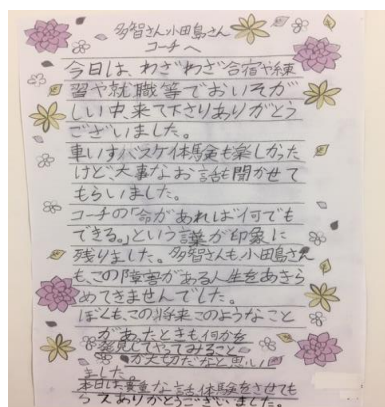 多智さん小田島さん
コーチへ
今日は、わざわざ合宿や練
習や就職等でおいそが
しい中、来て下さりありがとう
ございました。
車いすバスケ体験も楽しかった
けど、大事なお話も聞かせて
もらいました。
コーチの「命があれば何でも
できる。」という言葉が印象に
残りました。多智さんも小田島さん
も、この障害がある人生をあきら
めてきませんでした。
ぼくも、この将来このようなこと
があったときも何かを
発見してやってみること
が大切だなと思い
ました
本日は、貴重な話、体験をさせても
ありがとうございました。